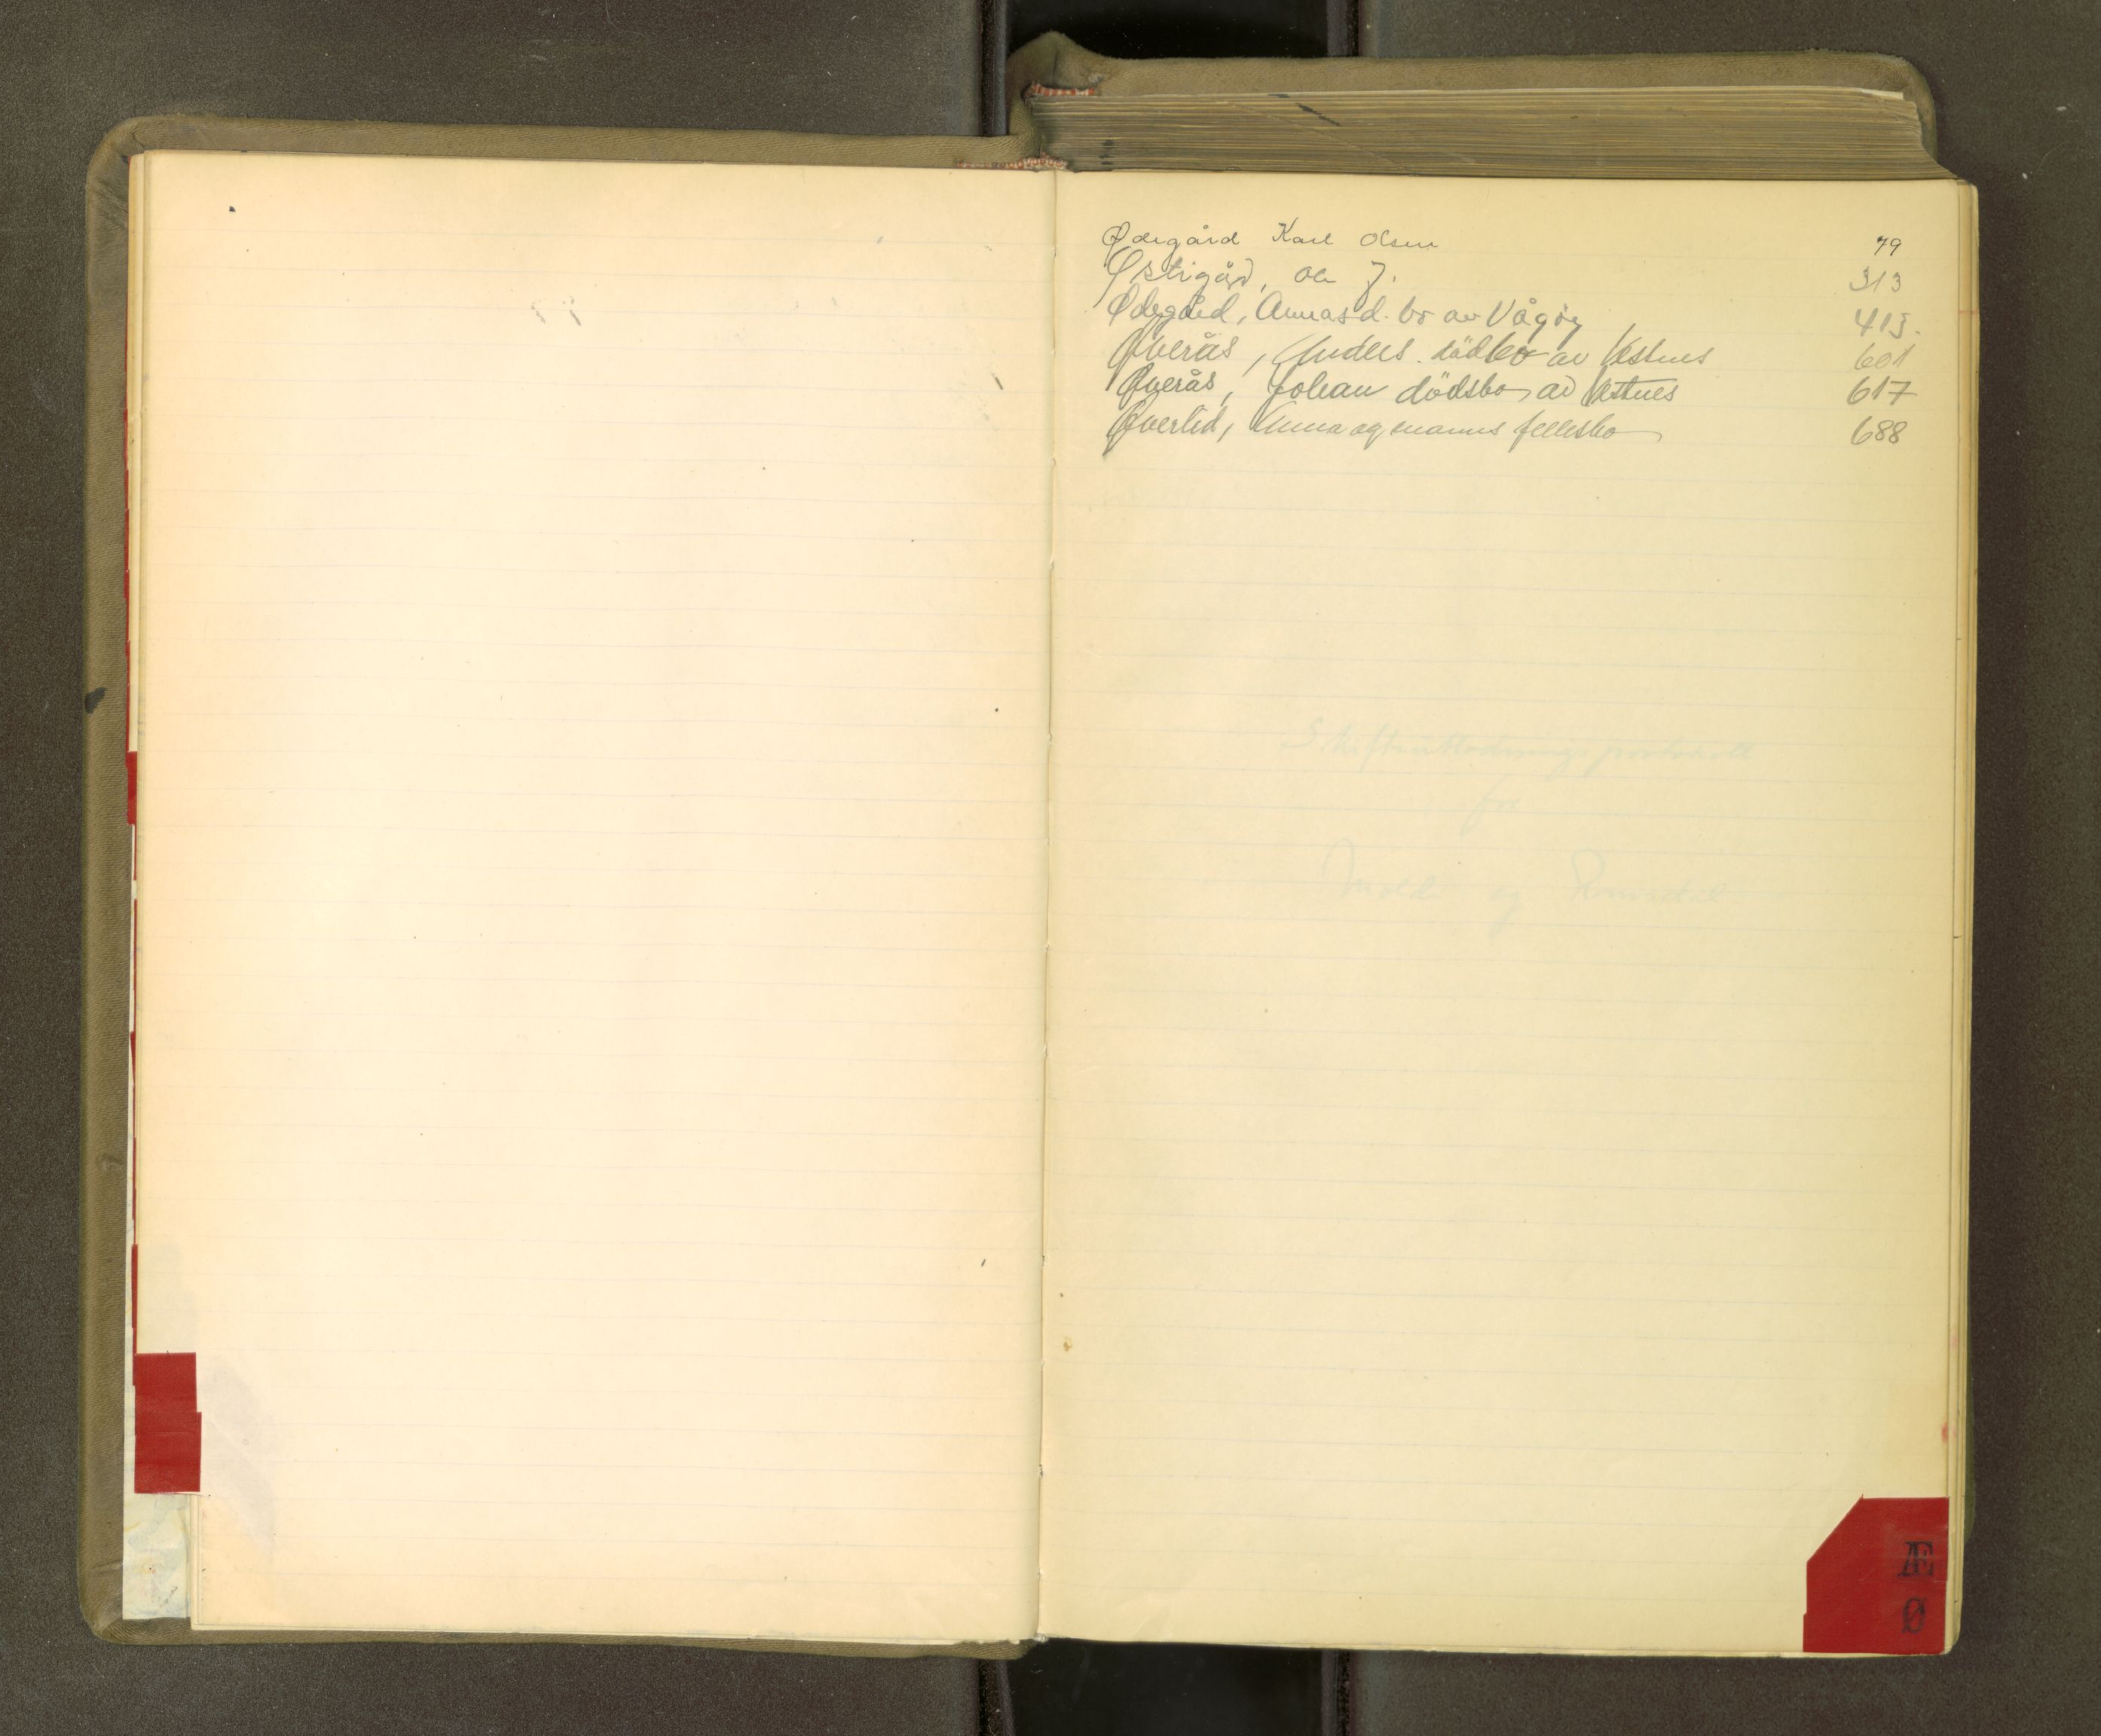 Ødegård Karl Olsen 79
Østigård, Ola J. 313
Ødegård, Annas d. bo av Vågøy 413.
Øverås, Anders dødbo av Vestnes 601
Øverås, Johan dödsbo av Vestnes 617
Øverlid, Anna og manns fellesbo 688
Skifteutlodningsprotokoll
for
Molde og Romsdal.
Æ
Ø